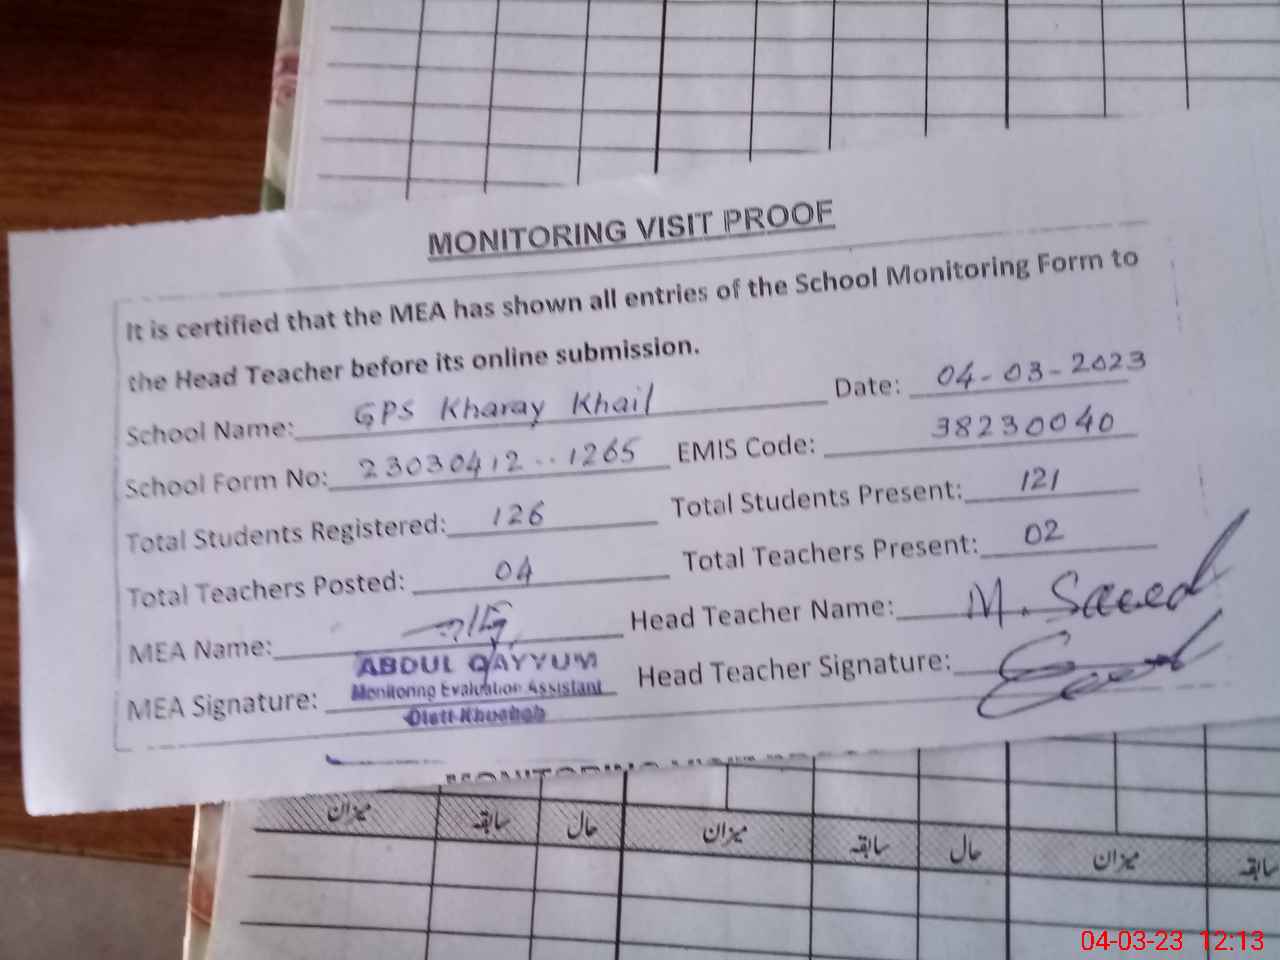 MONITORING VISIT PROOF
It is certified that the MEA has shown all entries of the School Monitoring Form to
the Head Teacher before its online submission.
School Name: GPS Kharay Khail Date: 04-03-2023
School Form No: 23030412--1265 EMIS Code: 38230040
Total Students Registered: 126 Total Students Present: 121
Total Teachers Posted: 04 Total Teachers Present: 02
MEA Name: Head Teacher Name: M. Saeed
ABDUL QAYYUM
MEA Signature: Monitoring Evaluation Assistant Head Teacher Signature:
Distt Khushab
میزان سابقہ حال میزان سابقہ حال میزان سابقہ
04-03-23 12:13